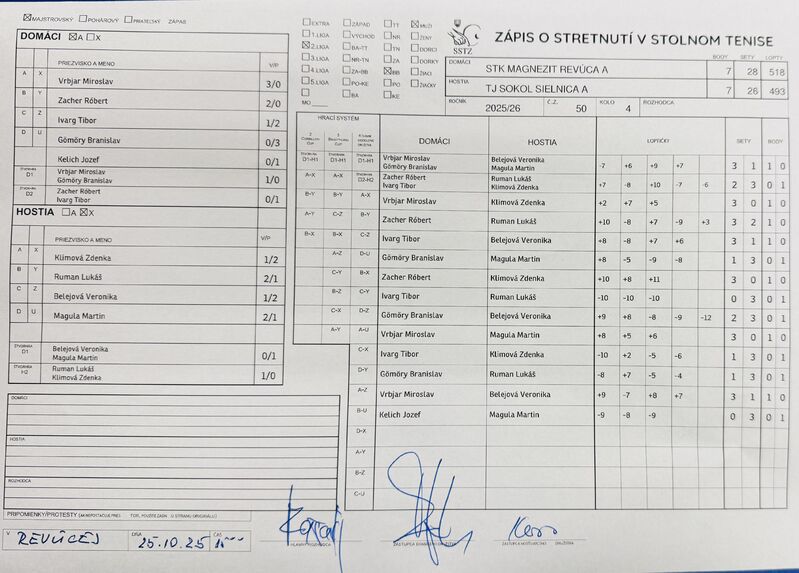 ☒MAJSTROVSKÝ ☐POHÁROVÝ ☐PRIATEĽSKÝ ZÁPAS
DOMÁCI ☒A ☐X
PRIEZVISKO A MENO V/P
A X Vrbjar Miroslav 3/0
B Y Zacher Róbert 2/0
C Z Ivarg Tibor 1/2
D U Gömöry Branislav 0/3
Kelich Jozef 0/1
ŠTVORHRA D1 Vrbjar Miroslav
Gömöry Branislav 1/0
ŠTVORHRA D2 Zacher Róbert
Ivarg Tibor 0/1
HOSTIA ☐A ☒X
PRIEZVISKO A MENO V/P
A X Klimová Zdenka 1/2
B Y Ruman Lukáš 2/1
C Z Belejová Veronika 1/2
D U Magula Martin 2/1
ŠTVORHRA D1 Belejová Veronika
Magula Martin 0/1
ŠTVORHRA H2 Ruman Lukáš
Klimová Zdenka 1/0
DOMÁCI
HOSTIA
ROZHODCA
PRIPOMIENKY/PROTESTY
V REVÚCEJ DŇA 25.10.25 ČAS
☐EXTRA ☐ZÁPAD ☐TT ☒MUŽI
☐1.LIGA ☐VÝCHOD ☐NR ☐ŽENY
☒2.LIGA ☐BA-TT ☐TN ☐DORCI
☐3.LIGA ☐NR-TN ☐ZA ☐DORKY
☐4.LIGA ☐ZA-BB ☒BB ☐ŽIACI
☐5.LIGA ☐PO-KE ☐PO ☐ŽIAČKY
☐ ☐BA ☐KE
MO
SSTZ
ZÁPIS O STRETNUTÍ V STOLNOM TENISE
BODY SETY LOPTY
DOMÁCI STK MAGNEZIT REVÚCA A 7 28 518
HOSTIA TJ SOKOL SIELNICA A 7 26 493
ROČNÍK 2025/26 Č.Z. 50 KOLO 4 ROZHODCA
HRACÍ SYSTÉM DOMÁCI HOSTIA LOPTIČKY SETY BODY
ŠTVORHRA D1-H1 ŠTVORHRA D1-H1 ŠTVORHRA D1-H1 Vrbjar Miroslav Belejová Veronika
Gömöry Branislav Magula Martin -7 +6 +9 +7 3 1 1 0
A-X A-X ŠTVORHRA D2-H2 Zacher Róbert Ruman Lukáš
Ivarg Tibor Klimová Zdenka +7 -8 +10 -7 -6 2 3 0 1
B-Y B-Y A-X Vrbjar Miroslav Klimová Zdenka +2 +7 +5 3 0 1 0
A-Y C-Z B-Y Zacher Róbert Ruman Lukáš +10 -8 +7 -9 +3 3 2 1 0
B-X B-X C-Z Ivarg Tibor Belejová Veronika +8 -8 +7 +6 3 1 1 0
A-Z D-U Gömöry Branislav Magula Martin +8 -5 -9 -8 1 3 0 1
C-Y B-X Zacher Róbert Klimová Zdenka +10 +8 +11 3 0 1 0
B-Z C-Y Ivarg Tibor Ruman Lukáš -10 -10 -10 0 3 0 1
C-X D-Z Gömöry Branislav Belejová Veronika +9 +8 -8 -9 -12 2 3 0 1
A-Y A-U Vrbjar Miroslav Magula Martin +8 +5 +6 3 0 1 0
C-X Ivarg Tibor Klimová Zdenka -10 +2 -5 -6 1 3 0 1
D-Y Gömöry Branislav Ruman Lukáš -8 +7 -5 -4 1 3 0 1
A-Z Vrbjar Miroslav Belejová Veronika +9 -7 +8 +7 3 1 1 0
B-U Kelich Jozef Magula Martin -9 -8 -9 0 3 0 1
D-X
A-Y
B-Z
C-U
HLAVNÝ ROZHODCA